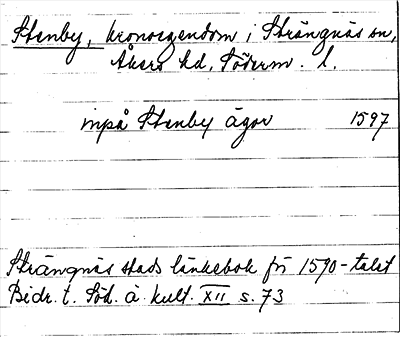 Stenby, kronoegendom i Strängnäs sn,
Åkers hd, Söderm. l.
inpå Stenby ägor 1597
Strängnäs stads tänkebok för 1590-talet
Bidr. t. Söd. ä. kult. XII s. 73